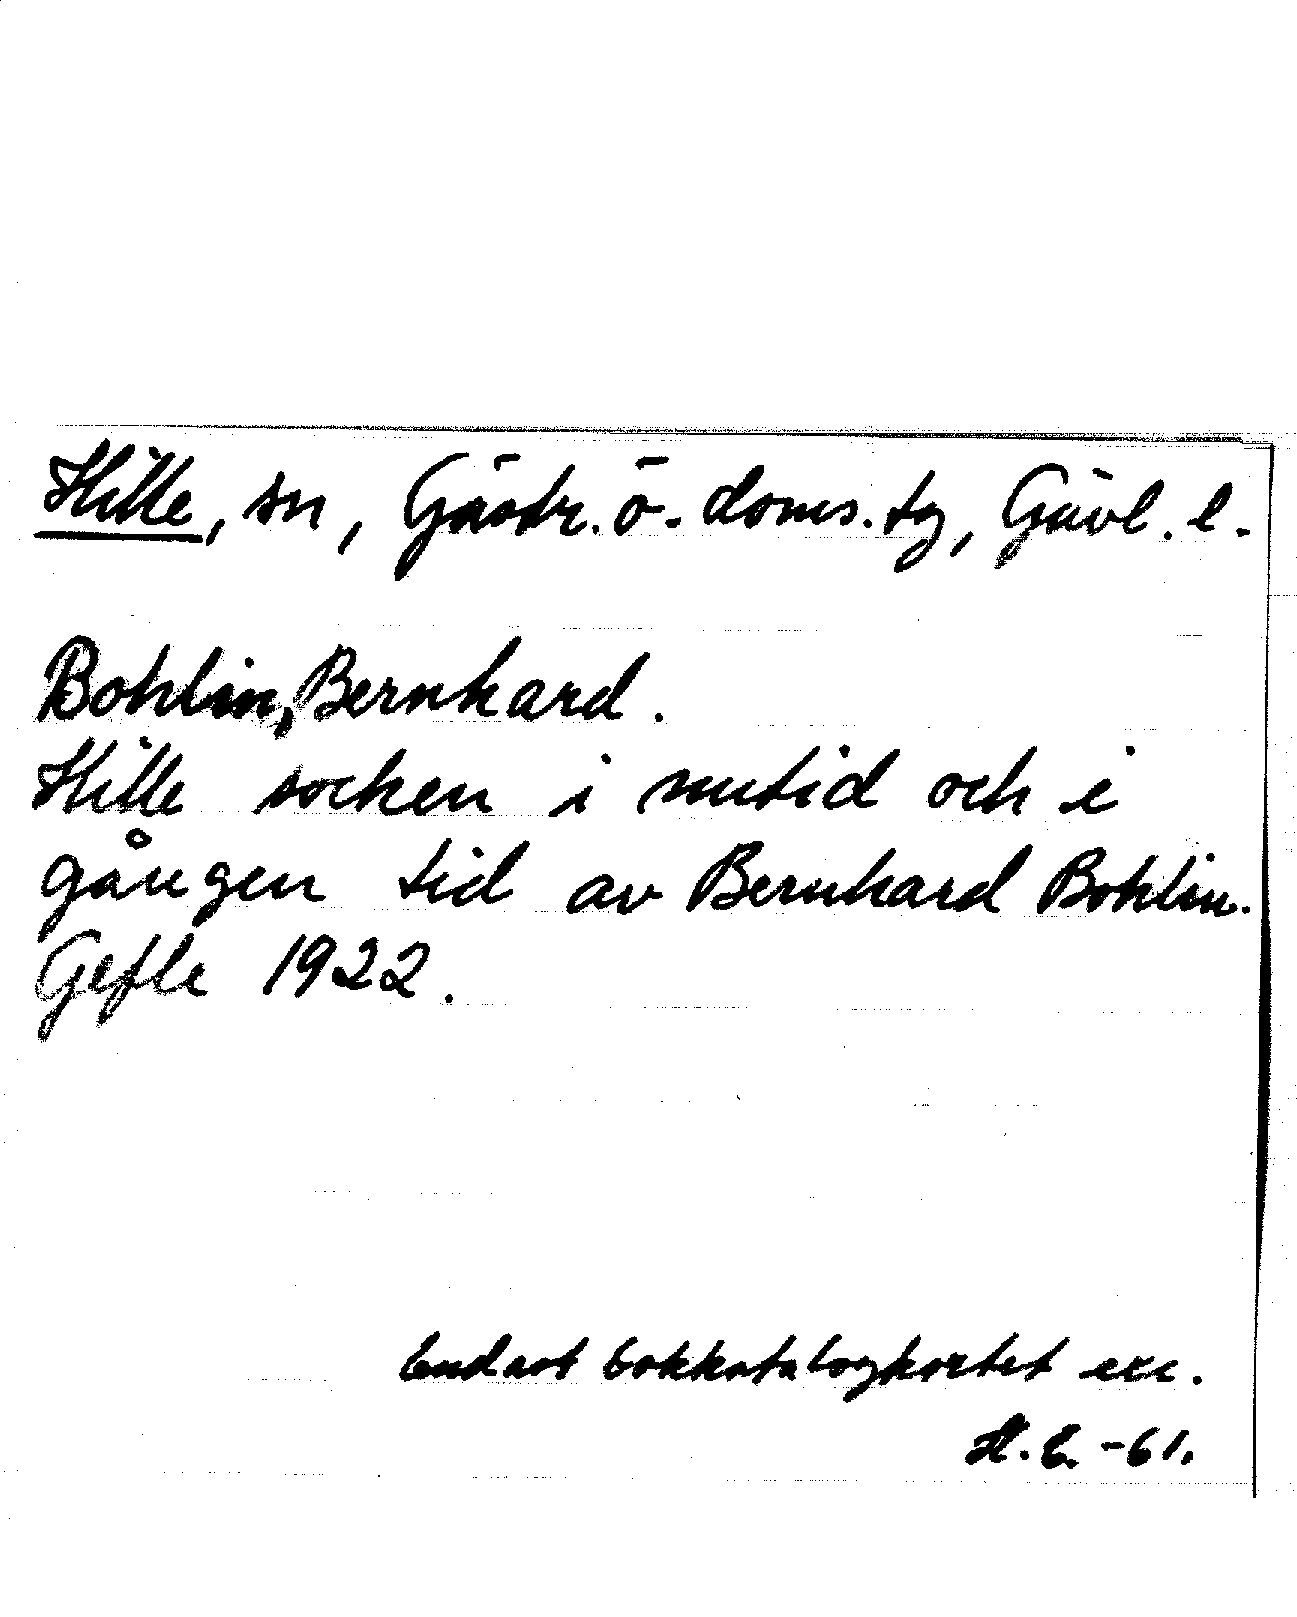 Hille, sn, Gästr. ö. doms. tg, Gävl. l.
Bohlin, Bernhard.
Hille socken i nutid och i
gången tid av Bernhard Bohlin.
Gefle 1922.
Endast bokkatalogkortet exc.
H.E. -61.